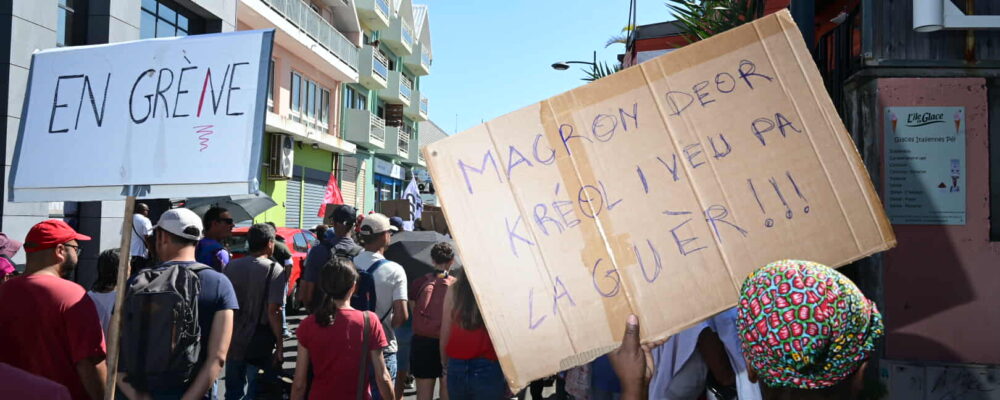 EN GRÈNE
MACRON DEOR
KRÉOL I VEU PA
LA GUÈR !!!
L'île en Glace
Glaces Italiennes Péi